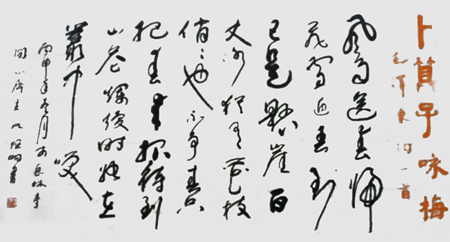 卜算子咏梅
毛泽东词一首
风雨送春归
飞雪迎春到
已是悬崖百
丈冰犹有花枝
俏俏也不争春只
把春来报待到
山花烂漫时她在
丛中笑
丙申年